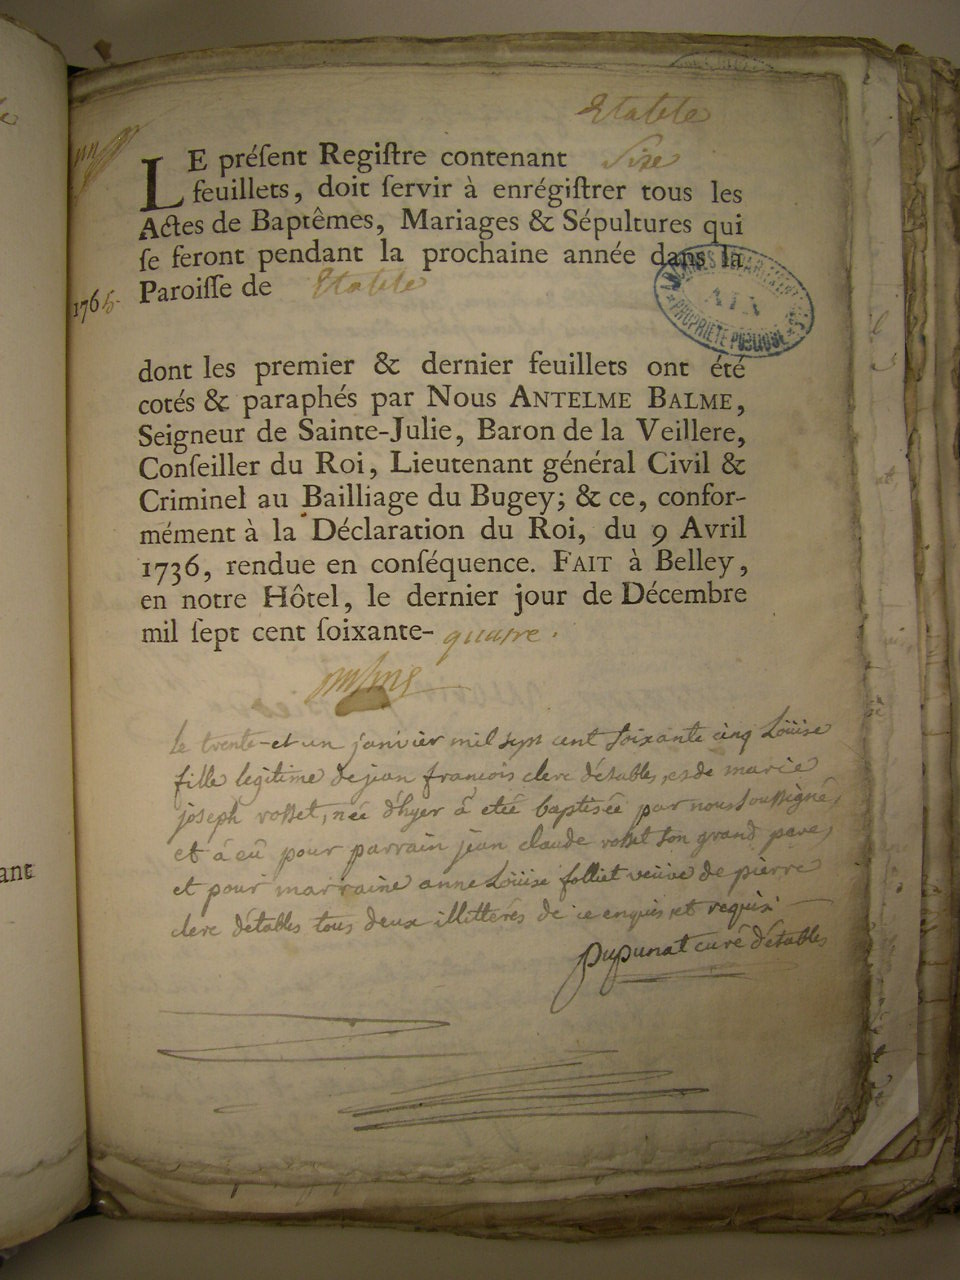 Etable
LE préſent Regiſtre contenant Sixe
feuillets, doit ſervir à enrégiſtrer tous les
Actes de Baptêmes, Mariages & Sépultures qui
ſe feront pendant la prochaine année dans la
Paroiſſe de Etable
1765.
PROPRIÉTÉ PUBLIQUE
AIN
dont les premier & dernier feuillets ont été
cotés & paraphés par Nous ANTELME BALME,
Seigneur de Sainte-Julie, Baron de la Veillere,
Conſeiller du Roi, Lieutenant général Civil &
Criminel au Bailliage du Bugey; & ce, confor-
mément à la Déclaration du Roi, du 9 Avril
1736, rendue en conſéquence. FAIT à Belley,
en notre Hôtel, le dernier jour de Décembre
mil ſept cent ſoixante- quatre.
Le trente-et un janvièr mil sept cent soixante cinq Loüise
fille legitime de jean francois clerc d'étables, et de marie
joseph rosset, née d'hyer â etée baptisée par nous soussigné,
et â eû pour parrain jean claude rosset son grand pere,
et pour marraine anne Loüise folliet veüve de pierre
clerc d'étables tous deux illitterés de ce enquis et requis.
Pupunat curé d'étables
ant